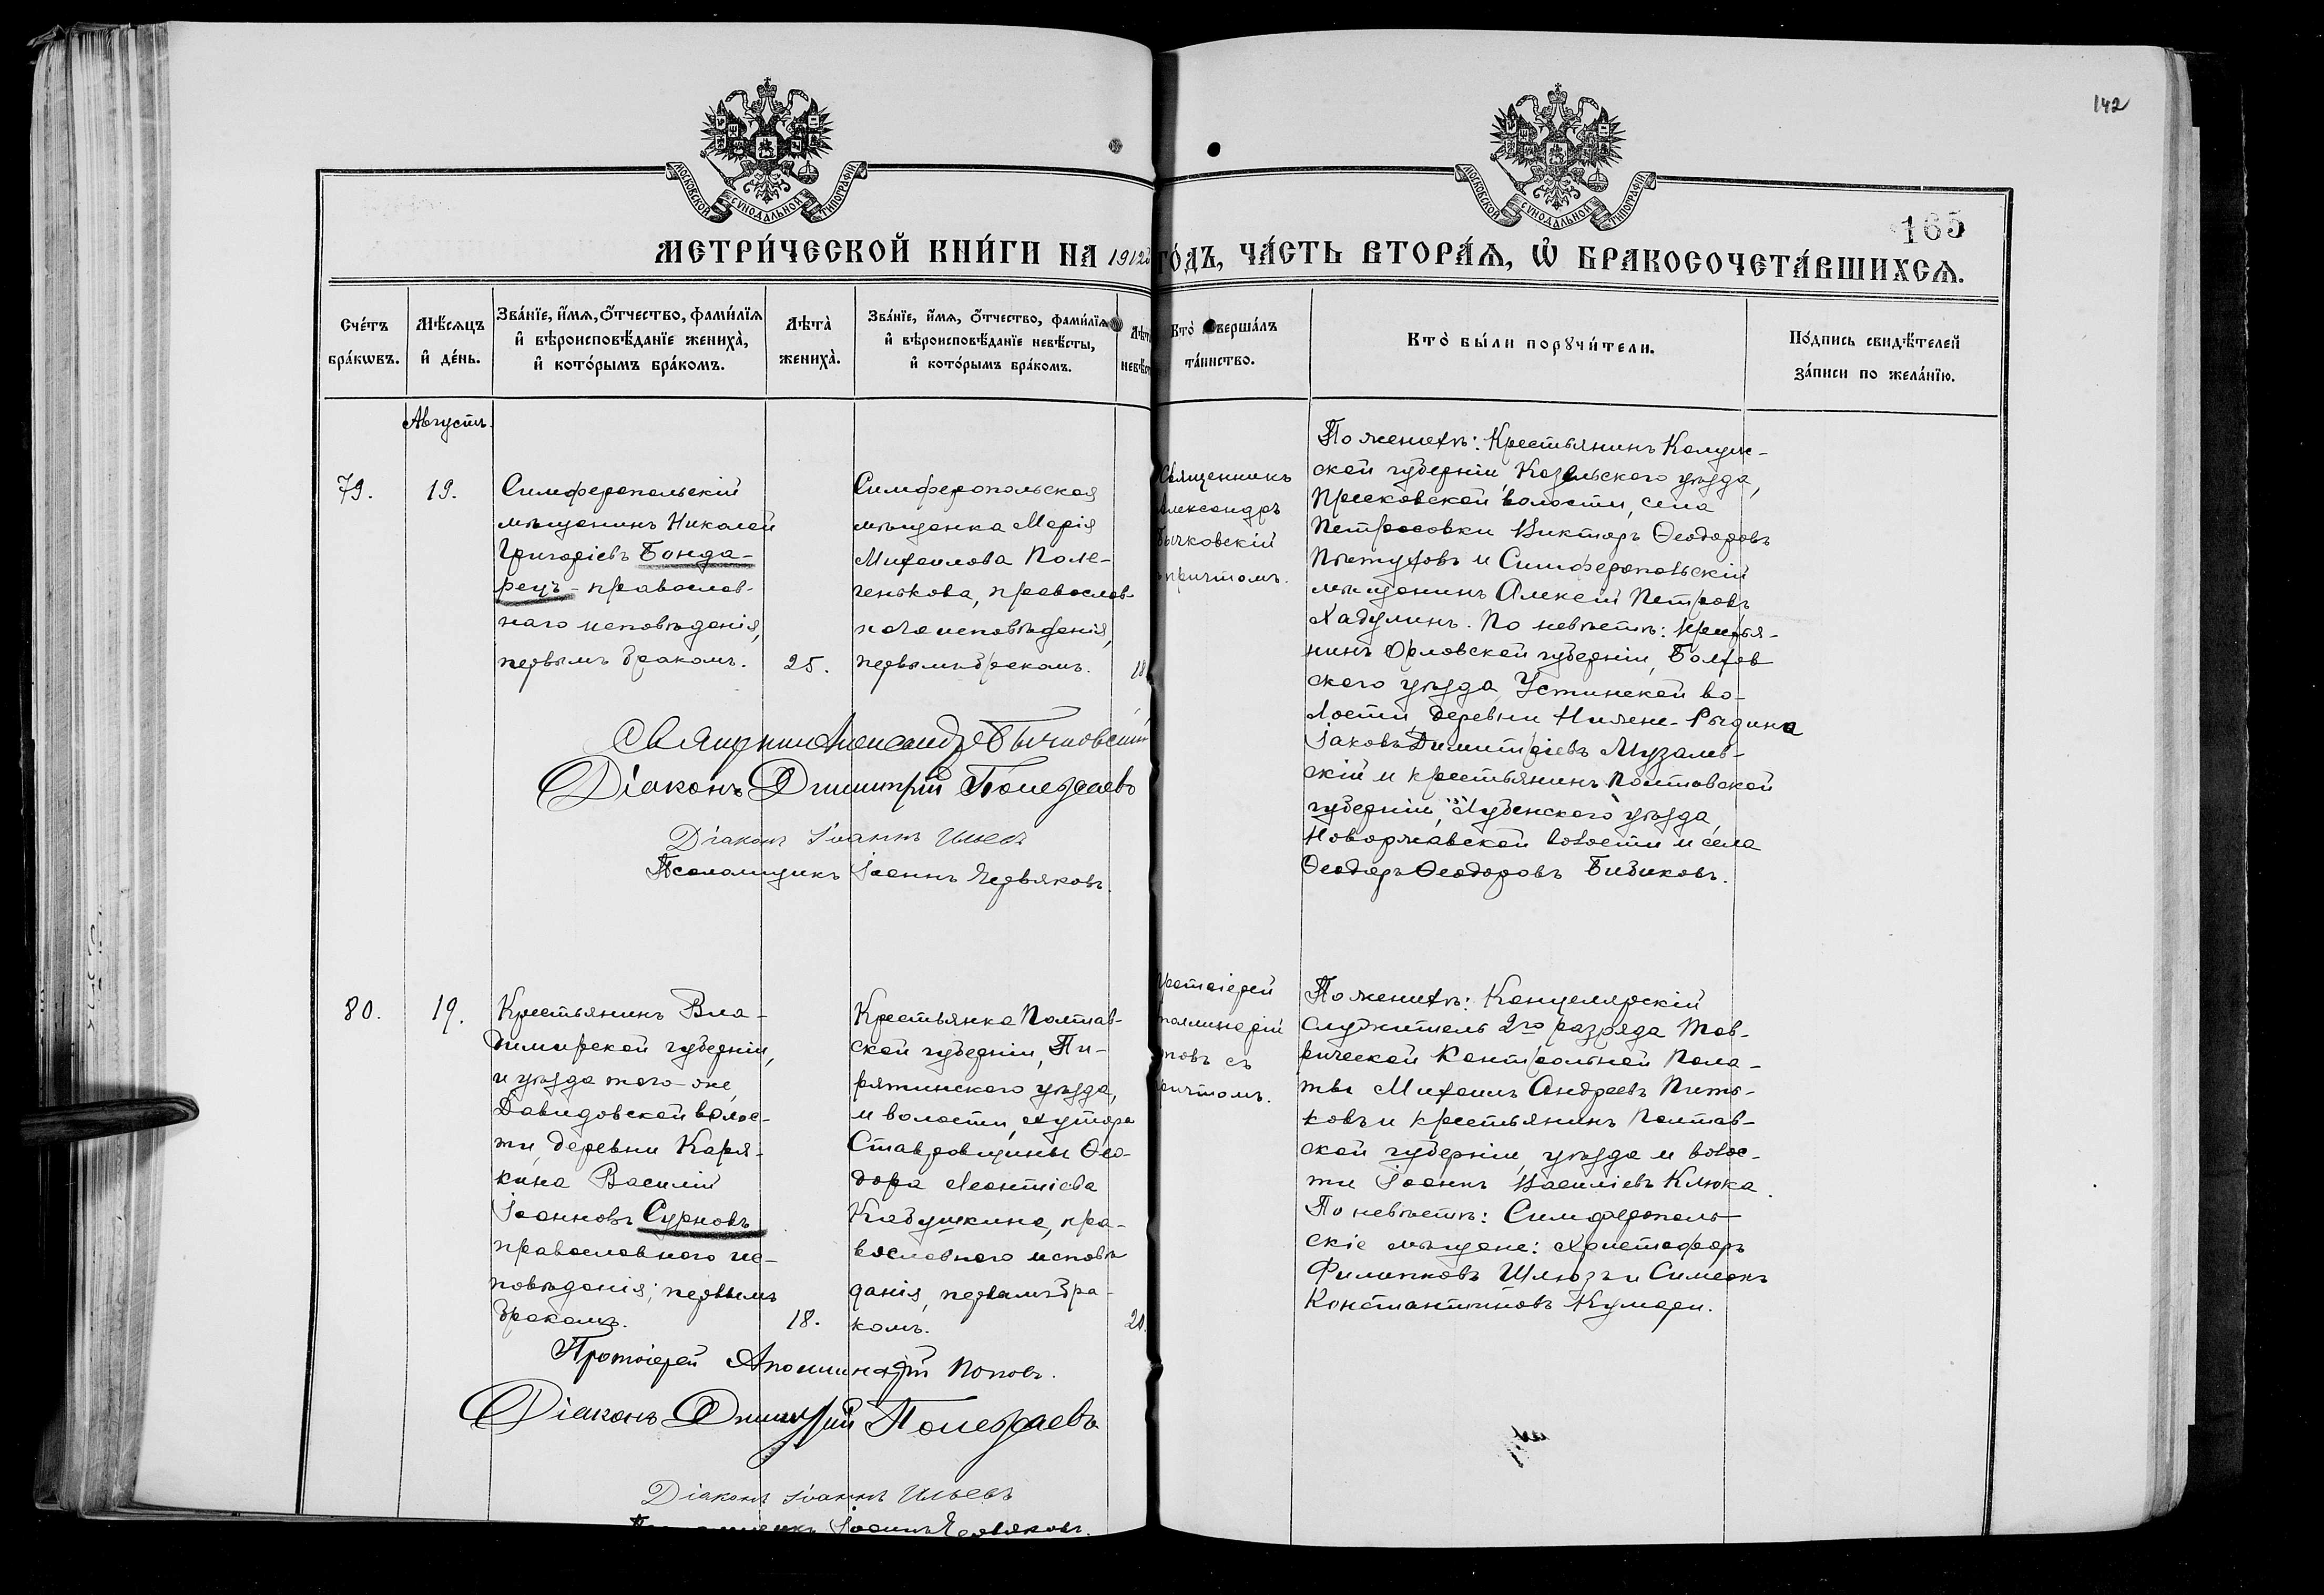 142
МОСКОВСКОЙ СѴНОДАЛЬНОЙ ТИПОГРАФІИ
МОСКОВСКОЙ СѴНОДАЛЬНОЙ ТИПОГРАФІИ
165
МЕТРИ́ЧЕСКОЙ КНИ́ГИ НА 1912й ГО́ДЪ, ЧА́СТЬ ВТОРА́Ѧ, Ѡ҆ БРАКОСОЧЕТА́ВШИХСѦ.
Сче́тъ бра́кѡвъ.
Мѣ́сѧцъ и҆ де́нь.
Зва́нїе, и҆́мѧ, ѻ҆́тчество, фами́лїѧ
и҆ вѣроисповѣ́данїе жениха̀,
и҆ кото́рымъ бра́комъ.
Лѣта̀ жениха̀.
Зва́нїе, и҆́мѧ, ѻ҆́тчество, фами́лїѧ
и҆ вѣроисповѣ́данїе невѣ́сты,
и҆ кото́рымъ бра́комъ.
Лѣт
невѣ́ст
Кто̀ соверша́лъ
та́инство.
Кто̀ бы́ли порꙋчи́тели.
По́дпись свидѣ́телей
за́писи по жела́нїю.
Августъ.
79.
19.
Симферопольскій
мѣщанинъ Николай
Григоріевъ Бонда-
рецъ - православ-
наго исповѣданія,
первымъ бракомъ.
25.
Симферопольская
мѣщанка Марія
Михаилова Поле-
генькова, православ-
наго исповѣданія,
первымъ бракомъ.
18
Священникъ
Александръ
Бычковскій
съ причтомъ.
По женихѣ: Крестьянинъ Калуж-
ской губерніи, Козельскаго уѣзда,
волости, села
Петросовки Викторъ Ѳеодоровъ
Пѣтуховъ и Симферопольскій
мѣщанинъ Алексій Петровъ
Хадулинъ. По невѣстѣ: крестья-
нинъ Орловской губерніи, Болхов
скаго уѣзда, Устинской во-
лости, деревни Нижне-Рыдина
Іаковъ Димитріевъ Музалев-
скій и крестьянинъ Полтавской
губерніи, Лубенскаго уѣзда,
Новоржавской волости и села
Ѳеодоръ Ѳеодоровъ Бибиковъ.
Священникъ Александръ Бычковскій
Діаконъ Димитрій Полежаевъ
Діаконъ Іоаннъ Ильевъ
Псаломщикъ Іоаннъ Червяковъ.
80.
19.
Крестьянинъ Вла-
димирской губерніи,
и уѣзда того-же,
Давидовской волос-
ти, деревни Каря-
кина Василій
Іоанновъ Сурковъ
православнаго ис-
повѣданія; первымъ
бракомъ.
18.
Крестьянка Полтав-
ской губерніи, Пи-
рятинскаго уѣзда,
и волости, хутора
Ставровщины Ѳео-
дора Леонтіева
Кабушкина, пра-
вославнаго исповѣ
данія, первымъ бра-
комъ.
20.
Протоіерей
Аполлинарій
Поповъ съ
причтомъ.
По женихѣ: Канцелярскій
служитель 2го разряда Тав-
рической Контрольной Пала-
ты Михаилъ Андреевъ Пить-
ковъ и крестьянинъ Полтав-
ской губерніи, уѣзда и волос-
ти Іоаннъ Василіевъ Клюка.
По невѣстѣ: Симферополь
скіе мѣщане: Христофоръ
Филипповъ Шлюзъ и Симеонъ
Константиновъ Кумари.
Протоіерей Аполлинарій Поповъ.
Діаконъ Димитрій Полежаевъ
Діаконъ Іоаннъ Ильевъ
Псаломщикъ Іоаннъ Червяковъ.